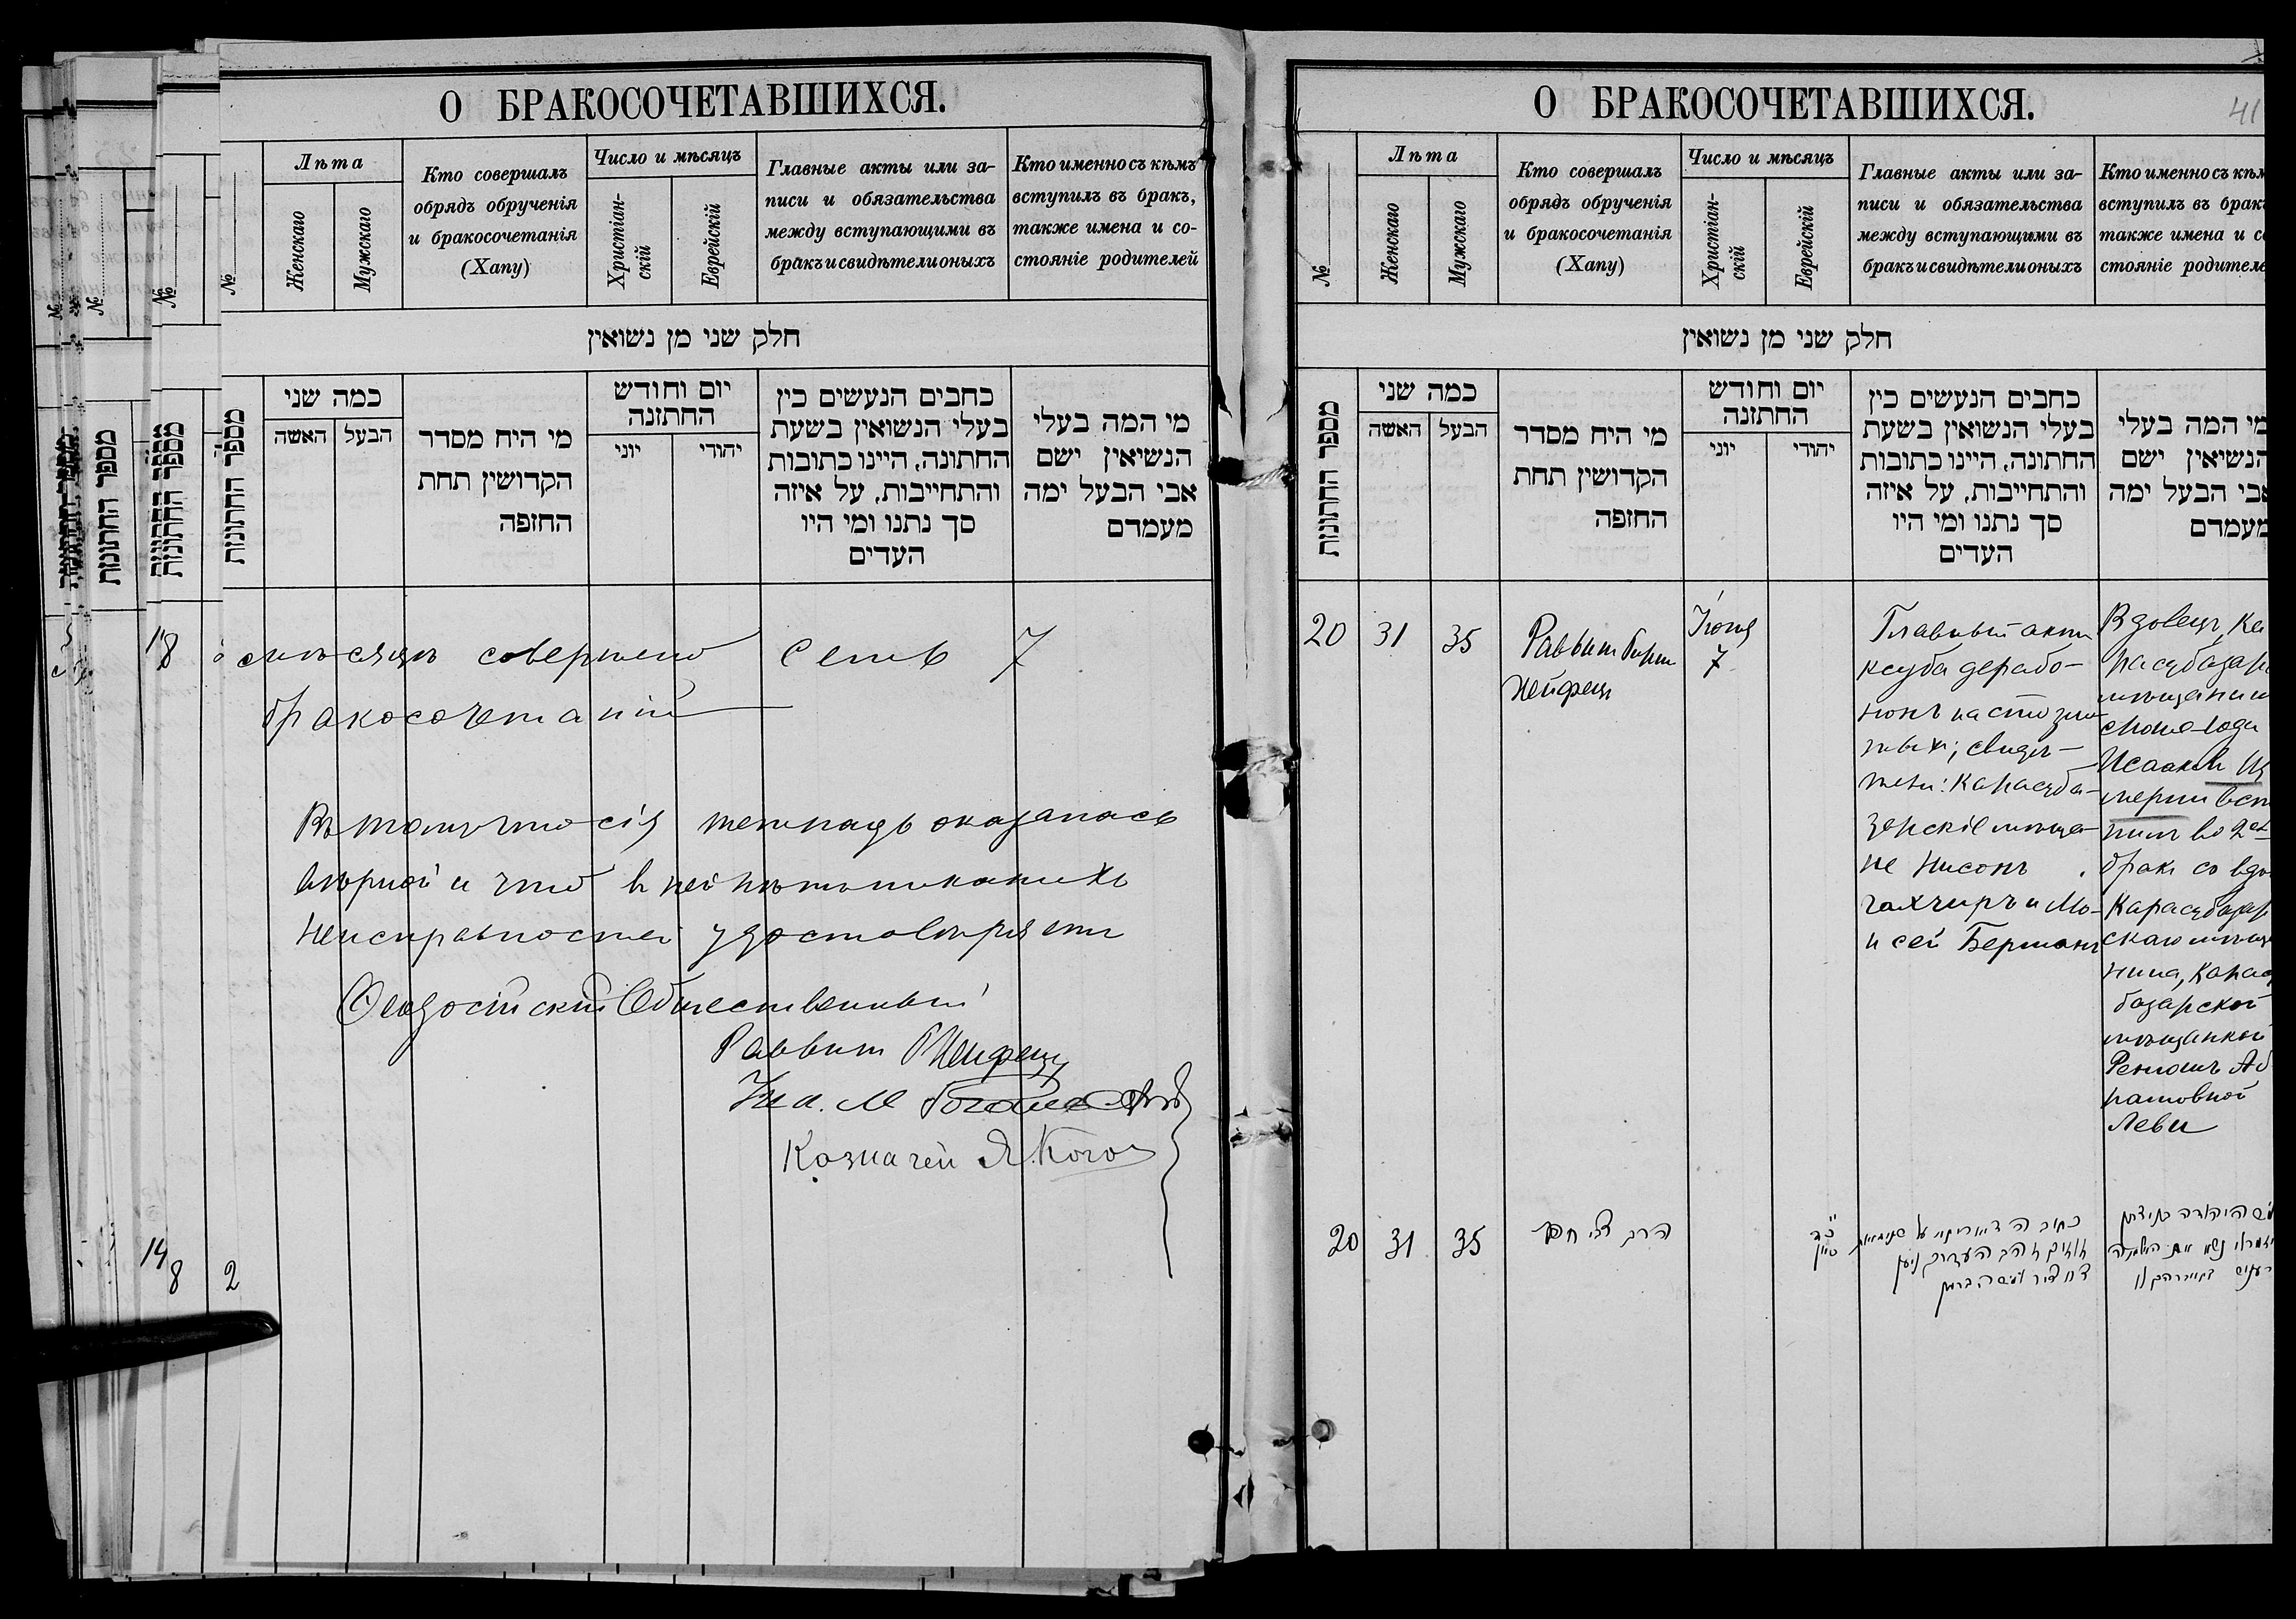 О БРАКОСОЧЕТАВШИХСЯ.
№
Лѣта
Женскаго
Мужскаго
Кто совершалъ
обрядъ обрученія
и бракосочетанія
(Хапу)
Число и мѣсяцъ
Христіан-
скій
Еврейскій
Главные акты или за-
писи и обязательства
между вступающими въ
бракъ и свидѣтели оныхъ
Кто именно съ кѣмъ
вступилъ въ бракъ,
также имена и со-
стояніе родителей
חלק שני מן נשואין
מספר החתונות
כמה שני
האשה
הבעל
מי היח מסדר
הקדושין תחת
החזפה
יום וחודש
החתזנה
יוני
יהודי
כחבים הנעשים כין
בעלי הנשואין בשעת
החתונה, היינו כתובות
והתחייבות, על איזה
סך נתנו ומי היו
העדים
מי המה בעלי
הנשיאין ישם
אבי הבעל ימה
מעמדם
18
мѣсяцѣ совершено семь 7
бракосочетаній
Въ томъ что сія тетрадь оказалась
вѣрной и что в ней нѣтъ никакихъ
неисправностей удостовѣряетъ
Ѳеодосійскій Общественный
Раввинъ Хейфецъ
Казначей Я. Коген
14
8 2
О БРАКОСОЧЕТАВШИХСЯ.
41
№
Лѣта
Женскаго
Мужскаго
Кто совершалъ
обрядъ обрученія
и бракосочетанія
(Хапу)
Число и мѣсяцъ
Христіан-
скій
Еврейскій
Главные акты или за-
писи и обязательства
между вступающими въ
бракъ и свидѣтели оныхъ
Кто именно съ кѣм
вступилъ въ брак
также имена и с
стояніе родителе
חלק שני מן נשואין
מספר החתונות
כמה שני
האשה
הבעל
מי היח מסדר
הקדושין תחת
החזפה
יום וחודש
החתזנה
יוני
יהודי
כחבים הנעשים כין
בעלי הנשואין בשעת
החתונה, היינו כתובות
והתחייבות, על איזה
סך נתנו ומי היו
העדים
מי המה בעלי
הנשיאין ישם
אבי הבעל ימה
מעמדם
20 31 35
Раввинъ Гирш
Хейфецъ
Іюня
7
Главный актъ
ксуба дерабо-
нонъ на сто зло-
тыхъ; свидѣ-
тели: Карасуба-
зарскіе мѣща-
не Нисонъ
Чахчиръ и Мо-
исей Берманъ
Вдовецъ, Ка
расубазар
мѣщанин
Исааков
вст
пилъ во 2й
бракъ со вдо
Карасубазар
скаго мѣща
нина, Карасу
базарской
мѣщанкой
Аб
рамовной
Леви
20 31 35
הרב צבי חפץ
כד
סיון